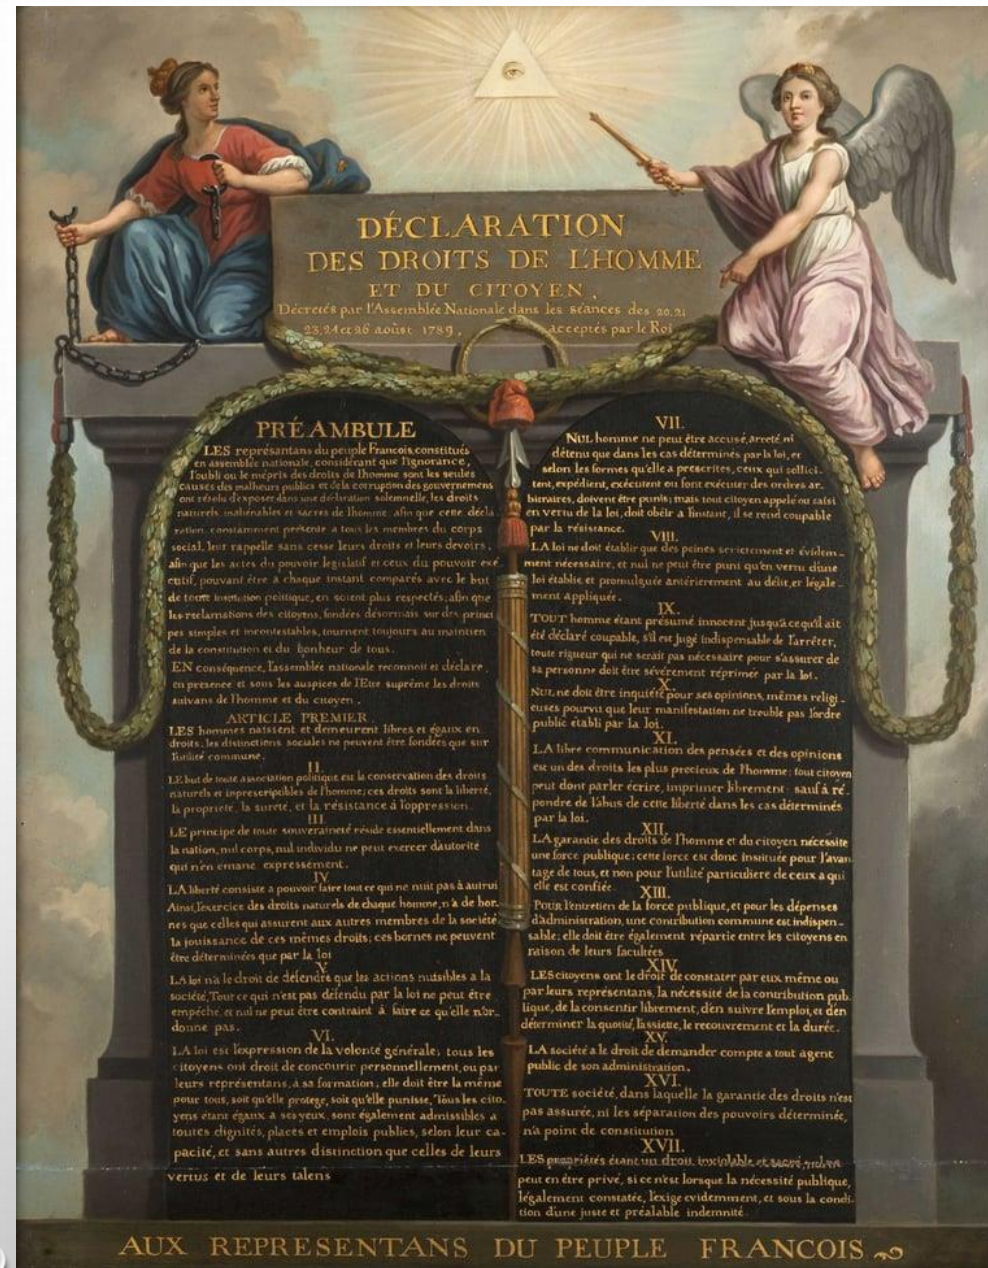 DÉCLARATION
DES DROITS DE L'HOMME
ET DU CITOYEN,
Décretés par l'Assemblée Nationale dans les séances des 20.21
23.24 et 26 aoûst 1789, acceptés par le Roi
PRÉAMBULE
LES représantans du peuple François, constitués
en assemblée nationale, considérant que l'ignorance,
l'oubli ou le mépris des droits de l'homme sont les seules
causes des malheurs publics et de la corruption des gouvernemens
ont résolu d'exposer dans une déclaration solemnelle, les droits
naturels, inaliénables et sacrés de l'homme, afin que cette décla
ration, constamment présente a tous les membres du corps
social, leur rappelle sans cesse leurs droits et leurs devoirs,
afin que les actes du pouvoir legislatif et ceux du pouvoir exé
cutif, pouvant être à chaque instant comparés avec le but
de toute institution politique, en soient plus respectés; afin que
les reclamations des citoyens, fondées désormais sur des princi
pes simples et incontestables, tournent toujours au maintien
de la constitution et du bonheur de tous.
EN conséquence, l'assemblée nationale reconnoît et déclare,
en presence et sous les auspices de l'Etre suprême les droits
suivans de l'homme et du citoyen.
ARTICLE PREMIER.
LES hommes naissent et demeurent libres et égaux en
droits, les distinctions sociales ne peuvent être fondées que sur
l'utilité commune.
II.
LE but de toute association politique est la conservation des droits
naturels et inprescriptibles de l'homme; ces droits sont la liberté,
la propriété, la sureté, et la résistance à l'oppression.
III.
LE principe de toute souveraineté réside essentiellement dans
la nation, nul corps, nul individu ne peut exercer d'autorité
qui n'en émane expressément.
IV.
LA liberté consiste a pouvoir faire tout ce qui ne nuit pas à autrui
Ainsi, l'exercice des droits naturels de chaque homme, n'a de bor-
nes que celles qui assurent aux autres membres de la société
la jouissance de ces mêmes droits; ces bornes ne peuvent
être déterminées que par la loi
V.
LA loi n'a le droit de défendre que les actions nuisibles a la
société, Tout ce qui n'est pas défendu par la loi ne peut être
empêché, et nul ne peut être contraint à faire ce qu'elle n'or-
donne pas.
VI.
LA loi est l'expression de la volonté générale; tous les
citoyens ont droit de concourir personnellement, ou par
leurs représentans, à sa formation; elle doit être la même
pour tous, soit qu'elle protege, soit qu'elle punisse, Tous les cito-
yens étant égaux à ses yeux, sont également admissibles a
toutes dignités, places et emplois publics, selon leur ca-
pacité, et sans autres distinction que celles de leurs
vertus et de leurs talens
VII.
NUL homme ne peut être accusé, arreté ni
détenu que dans les cas déterminés par la loi, et
selon les formes qu'elle a prescrites, ceux qui sollici-
tent, expédient, exécutent ou font exécuter des ordres ar-
bitraires, doivent être punis; mais tout citoyen appelé ou saisi
en vertu de la loi, doit obéir a l'instant, il se rend coupable
par la résistance.
VIII.
LA loi ne doit établir que des peines strictement et évidem-
ment nécessaire, et nul ne peut être puni qu'en vertu d'une
loi établie et promulguée antérierement au délit, et légale-
ment appliquée.
IX.
TOUT homme étant présumé innocent jusqu'a ce qu'il ait
été déclaré coupable, s'il est jugé indispensable de l'arrêter,
toute rigueur qui ne serait pas nécessaire pour s'assurer de
sa personne doit être sévèrement réprimée par la loi.
X.
NUL ne doit être inquiété pour ses opinions, mêmes religi
euses pourvu que leur manifestation ne trouble pas l'ordre
public établi par la loi.
XI.
LA libre communication des pensées et des opinions
est un des droits les plus precieux de l'homme; tout citoyen
peut dont parler écrire, imprimer librement; sauf à ré
pondre de l'abus de cette liberté dans les cas déterminés
par la loi.
XII.
LA garantie des droits de l'homme et du citoyen nécessite
une force publique; cette force est donc instituée pour l'avan
tage de tous, et non pour l'utilité particuliere de ceux a qui
elle est confiée.
XIII.
POUR l'entretien de la force publique, et pour les dépenses
d'administration, une contribution commune est indispen-
sable; elle doit être également répartie entre les citoyens en
raison de leurs facultées
XIV.
LES citoyens ont le droit de constater par eux même ou
par leurs représentans, la nécessité de la contribution pub-
lique, de la consentir librement, d'en suivre l'emploi, et d'en
déterminer la quotité, l'assiette, le recouvrement et la durée.
XV.
LA société a le droit de demander compte a tout agent
public de son administration.
XVI.
TOUTE société, dans laquelle la garantie des droits n'est
pas assurée, ni les séparation des pouvoirs déterminée,
n'a point de constitution
XVII.
LES propriétés étant un droit inviolable et sacré, nul ne
peut en être privé, si ce n'est lorsque la nécessité publique,
légalement constatée, l'exige evidemment, et sous la condi-
tion d'une juste et préalable indemnité.
AUX REPRESENTANS DU PEUPLE FRANCOIS